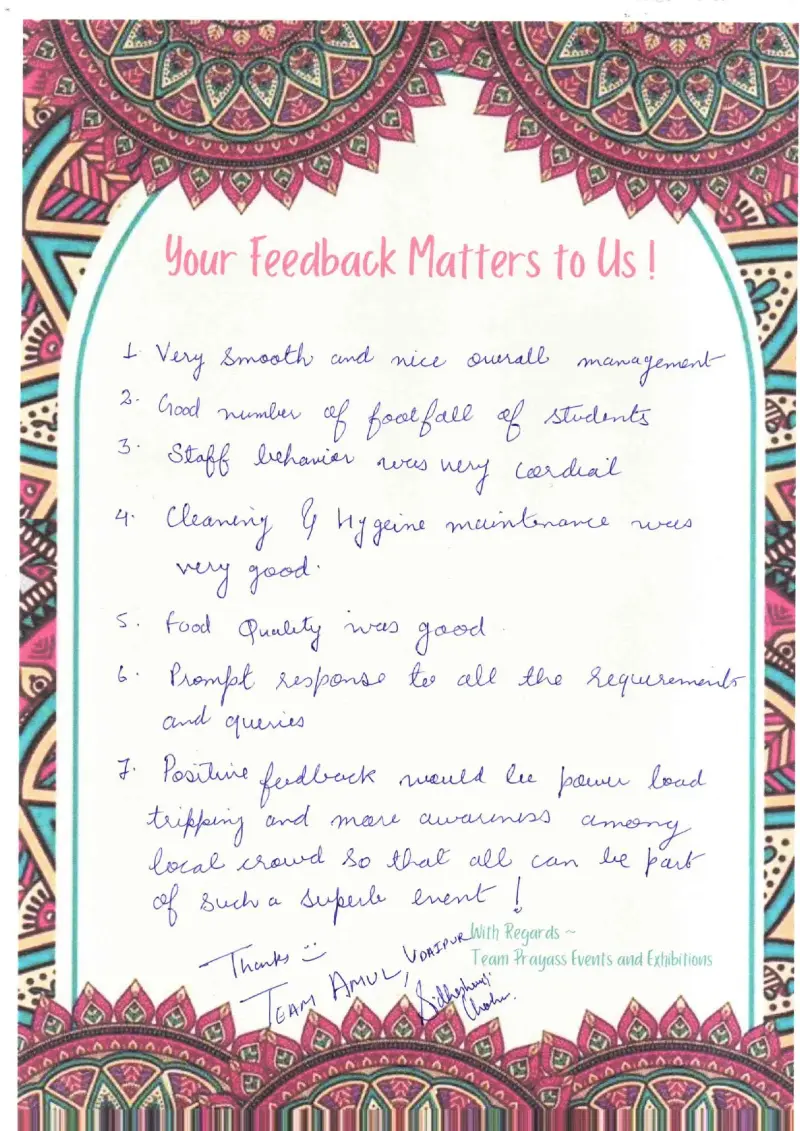 Your Feedback Matters to Us !
1. Very Smooth and nice overall management
2. Good number of footfall of students
3. Staff behavior was very cordial
4. Cleaning & Hygeine maintenance was
very good.
5. Food Quality was good
6. Prompt response to all the requirements
and queries
7. Positive feedback would be power load
tripping and more awareness among
local crowd so that all can be part
of such a superb event !
With Regards ~
Team Prayass Events and Exhibitions
Thanks :)
TEAM AMUL, UDAIPUR